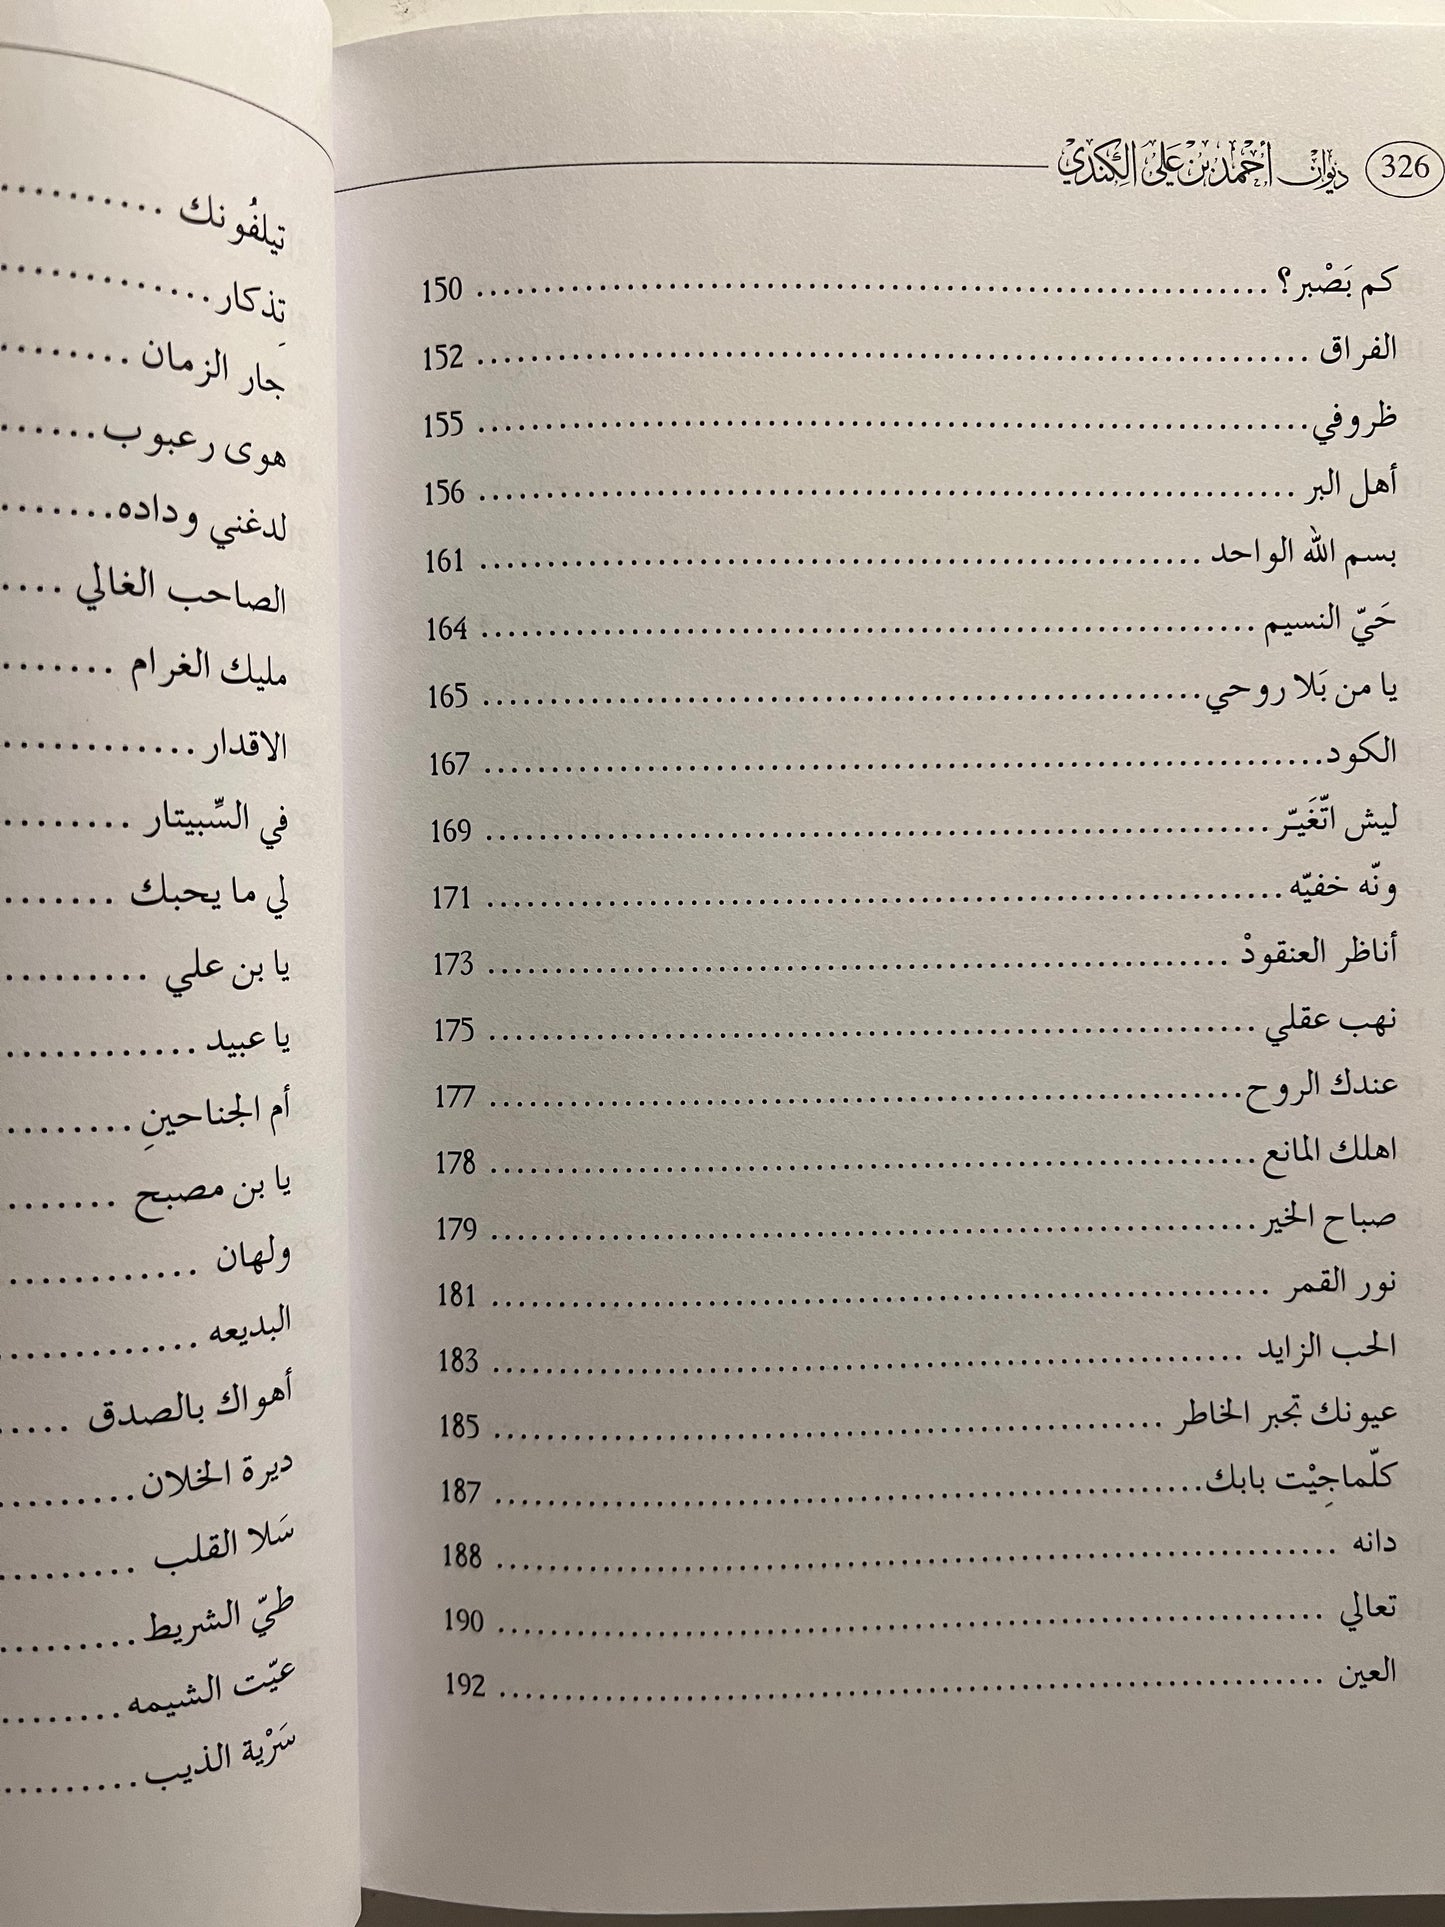 326 ديوان أحمد بن علي الكندي
كم بَصْبر؟ 150
الفراق 152
ظروفي 155
أهل البر 156
بسم الله الواحد 161
حَيّ النسيم 164
يا من بَلا روحي 165
الكود 167
ليش اتّغَيّر 169
ونّه خفيّه 171
أناظر العنقودْ 173
نهب عقلي 175
عندك الروح 177
اهلك المانع 178
صباح الخير 179
نور القمر 181
الحب الزايد 183
عيونك تجبر الخاطر 185
كلّما جِيْت بابك 187
دانه 188
تعالي 190
العين 192
تيلفُونك
تِذكار
جار الزمان
هوى رعبوب
لدغني وداده
الصاحب الغالي
مليك الغرام
الاقدار
في السِّبيتار
لي ما يحبك
يا بن علي
يا عبيد
أم الجناحينِ
يا بن مصبح
ولهان
البديعه
أهواك بالصدق
ديرة الخلان
سَلا القلب
طيّ الشريط
عيّت الشيمه
سَرْية الذيب